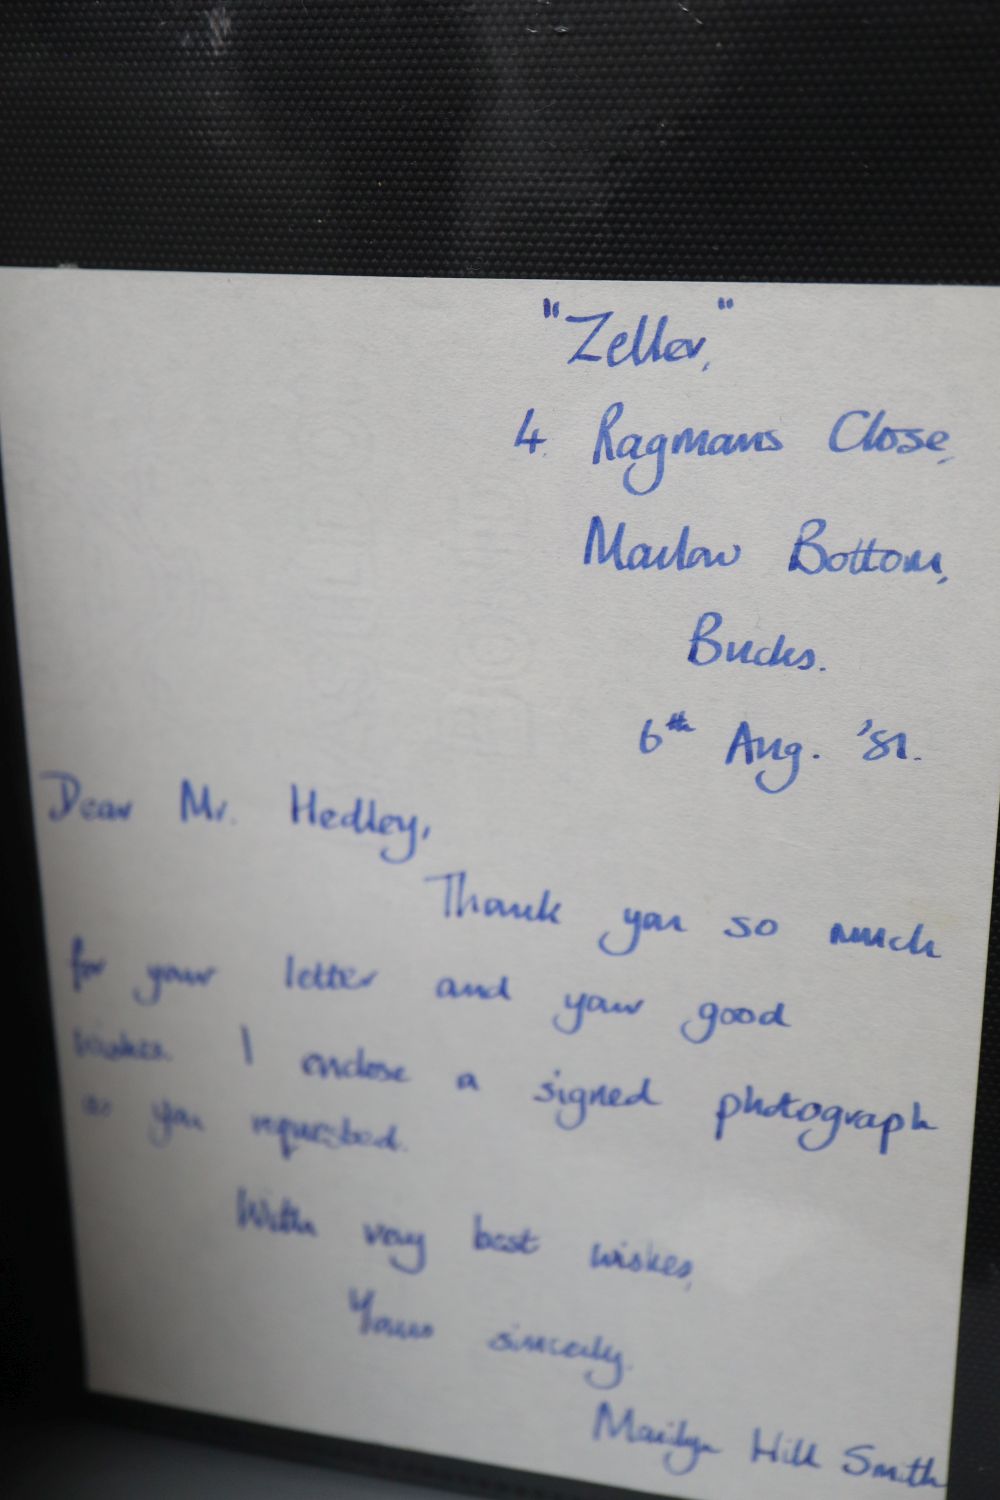 "Zeller,"
4 Ragmans Close,
Marlow Bottom,
Bucks.
6th Aug. '81.
Dear Mr. Hedley,
Thank you so much
for your letter and your good
wishes. I enclose a signed photograph
as you requested.
With very best wishes,
Yours sincerely.
Marilyn Hill Smith